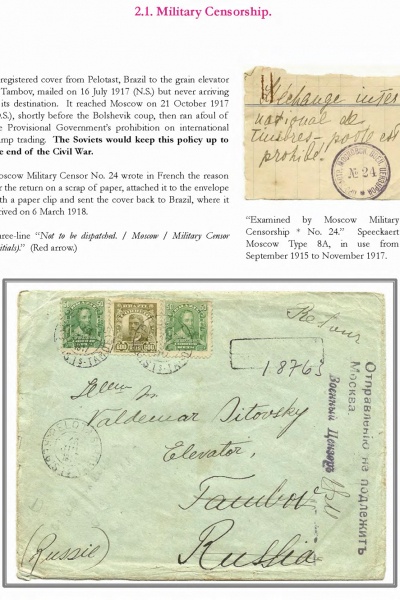 2.1. Military Censorship.
registered cover from Pelotast, Brazil to the grain elevator
Tambov, mailed on 16 July 1917 (N.S.) but never arriving
its destination. It reached Moscow on 21 October 1917
O.S.), shortly before the Bolshevik coup, then ran afoul of
e Provisional Government's prohibition on international
amp trading. The Soviets would keep this policy up to
e end of the Civil War.
oscow Military Censor No. 24 wrote in French the reason
r the return on a scrap of paper, attached it to the envelope
th a paper clip and sent the cover back to Brazil, where it
rived on 6 March 1918.
hree-line "Not to be dispatched. / Moscow / Military Censor
nitials)." (Red arrow.)
L'échange inter
national de
timbres-poste est
prohibé.
№ 24
"Examined by Moscow Military
Censorship * No. 24." Speeckaert
Moscow Type 8A, in use from
September 1915 to November 1917.
BRAZIL
Retour
18763
Отправленію не подлежитъ
Москва.
Военный Цензоръ
Valdemar Sitovsky
Elevator,
Tambov
Russia
(Russie)